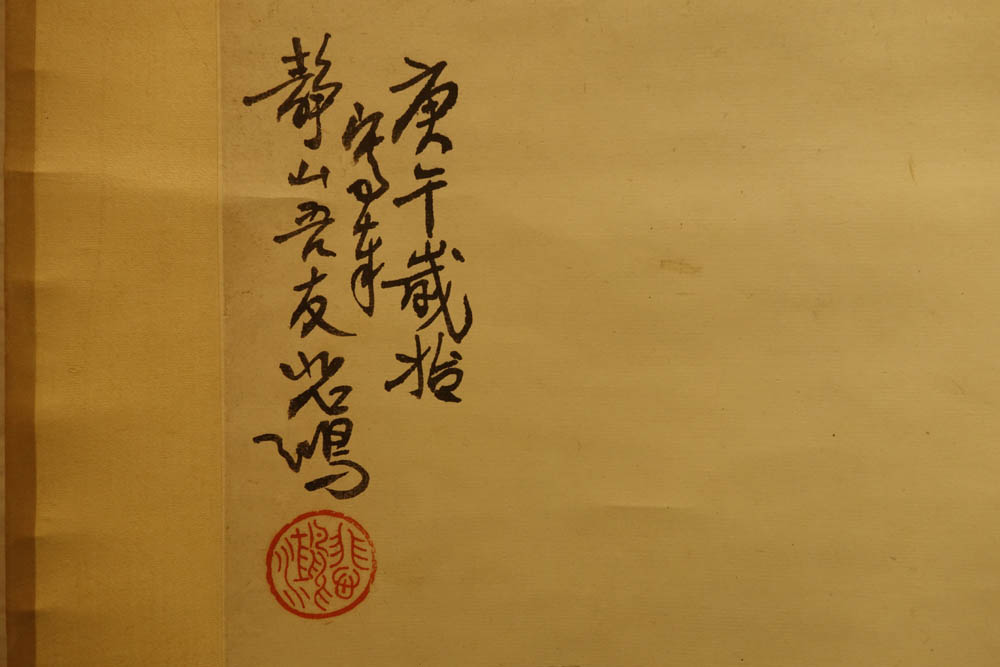 庚午歲拾
寫奉
靜山吾友悲鴻